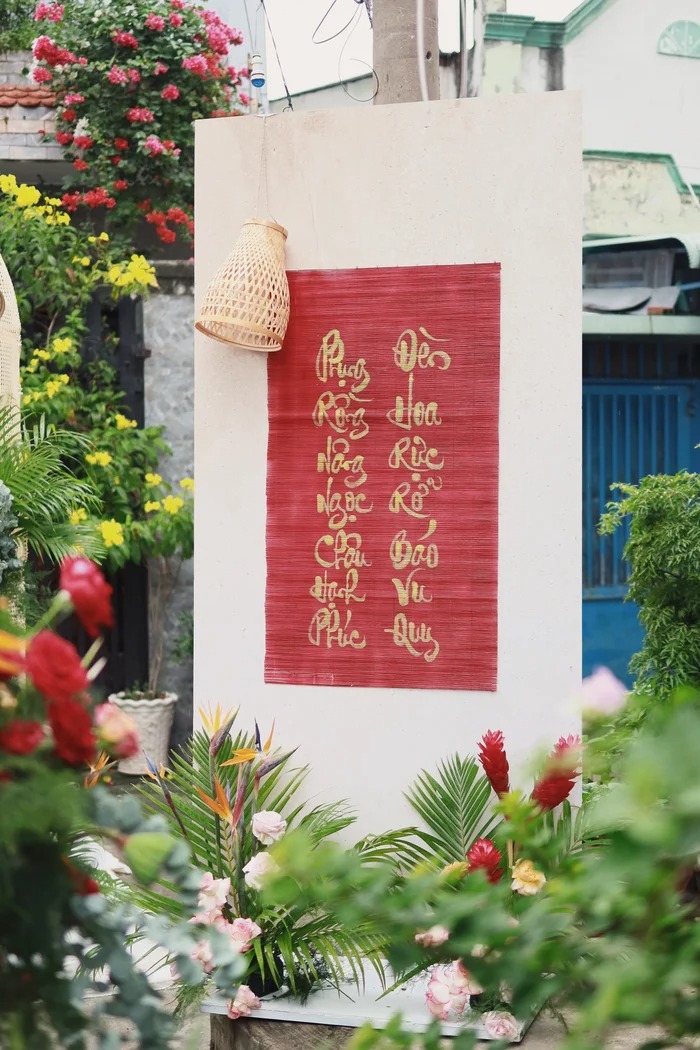 Phụng Rồng Nâng Ngọc Châu Hạnh Phúc
Đèn Hoa Rực Rỡ Đáo Vu Quy